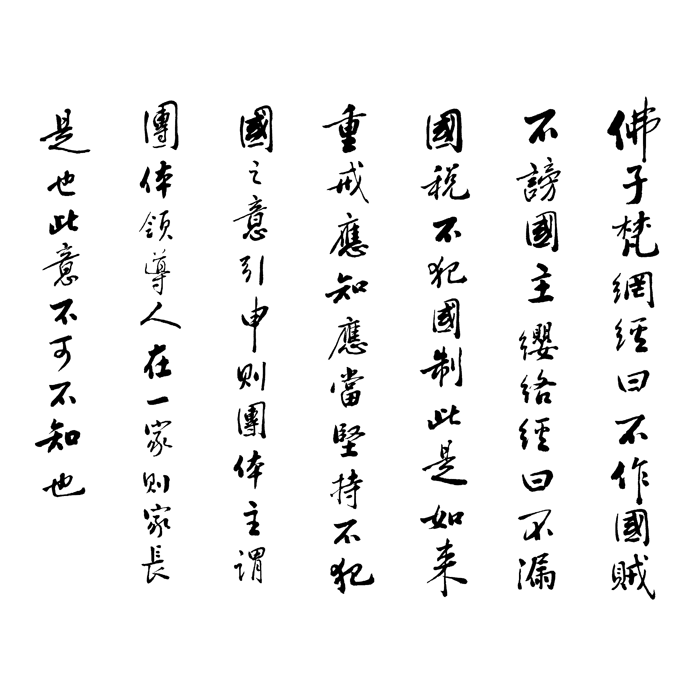 佛子梵網經曰不作國賊
不謗國主纓絡經曰不漏
國税不犯國制此是如来
重戒應知應當堅持不犯
國之意引申則團体主謂
團体領導人在一家则家長
是也此意不可不知也